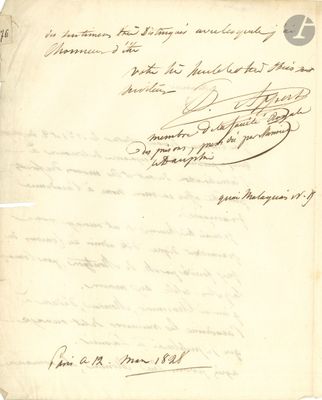 76
des sentimens très Distingués avec lesquels j'ai
l'honneur d'être
votre très humble & très obéis sant
serviteur
B. Appert
membre de la société Royale
des prisons, présidée par
le Dauphin
quai Malaquais n.
Paris le 12. Mars 1828